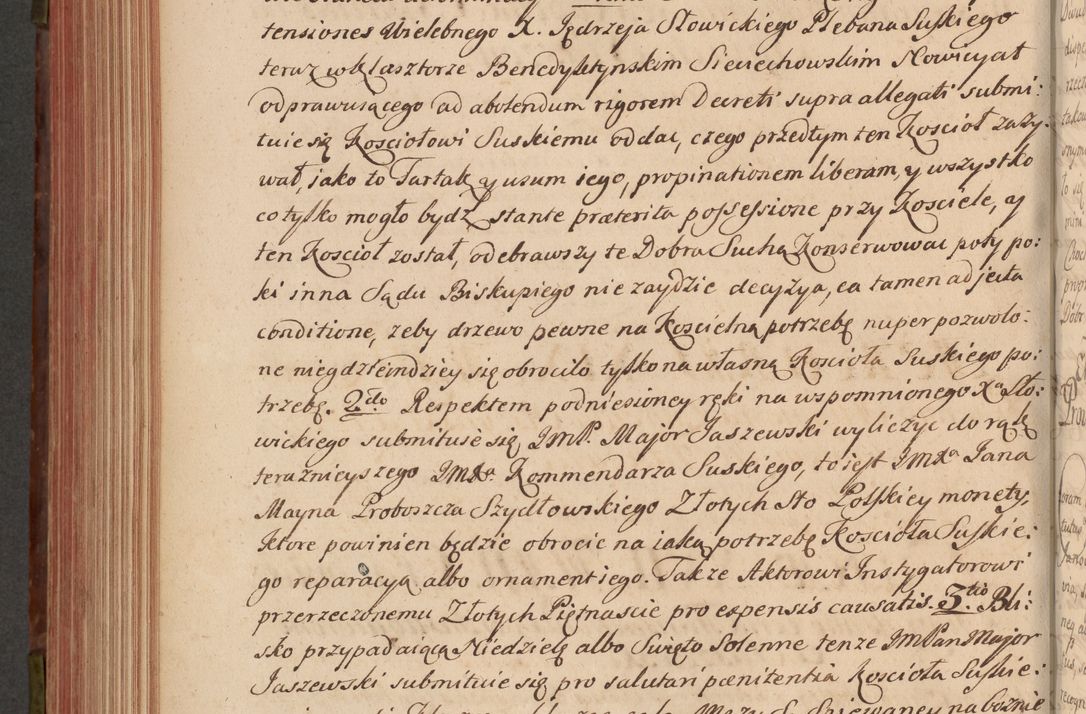 tensiones Wielebnego X. Jędrzeja Słowickiego Plebana Suskiego
teraz w klasztorze Benedyktynskim Sieciechowskim Nowicyat
odprawuiącego ad abolendum rigorem Decreti supra allegati submi:
tuie się Kosciołowi Suskiemu oddać, czego przedtym ten Kosciół zaży:
wał, jako to Tartak y usum iego, propinationem liberam, y wszystko
co tylko mogło bydź stante præterita possessione przy Kosciele, y
ten Kosciół został, odebrawszy te Dobra Suchą Konserwować poty po:
ki inna Sądu Biskupiego nie zaydzie decyzya, ea tamen adjecta
conditione, żeby drzewo pewne na Koscielną potrzebę nuper pozwolo:
ne niegdzieindziey się obrociło tylko na własną Kosciola Suskiego po:
trzebę. 2do Respektem podniesioney ręki na wspomnionego Xa Sło:
wickiego submituie się JMP. Major Jaszewski wyliczyć do rąk
teraznieyszego JMXa. Kommendarza Suskiego, to iest JMXa Jana
Mayna Proboszcza Szydłowskiego Złotych Sto Polskiey monety,
ktore powinien będzie obrocic na iaką potrzebę Kosciola Suskie:
go reparacyą albo ornament iego. Także Aktorowi Instygatorowi
przerzeczonemu Złotych Piętnascie pro expensis causatis. 3tio. Bli:
sko przypadaiącą Niedzielę albo Swięto Solenne tenże JMPan Major
Jaszewski submituie się pro salutari pœnitentia Kosciola Suskie: